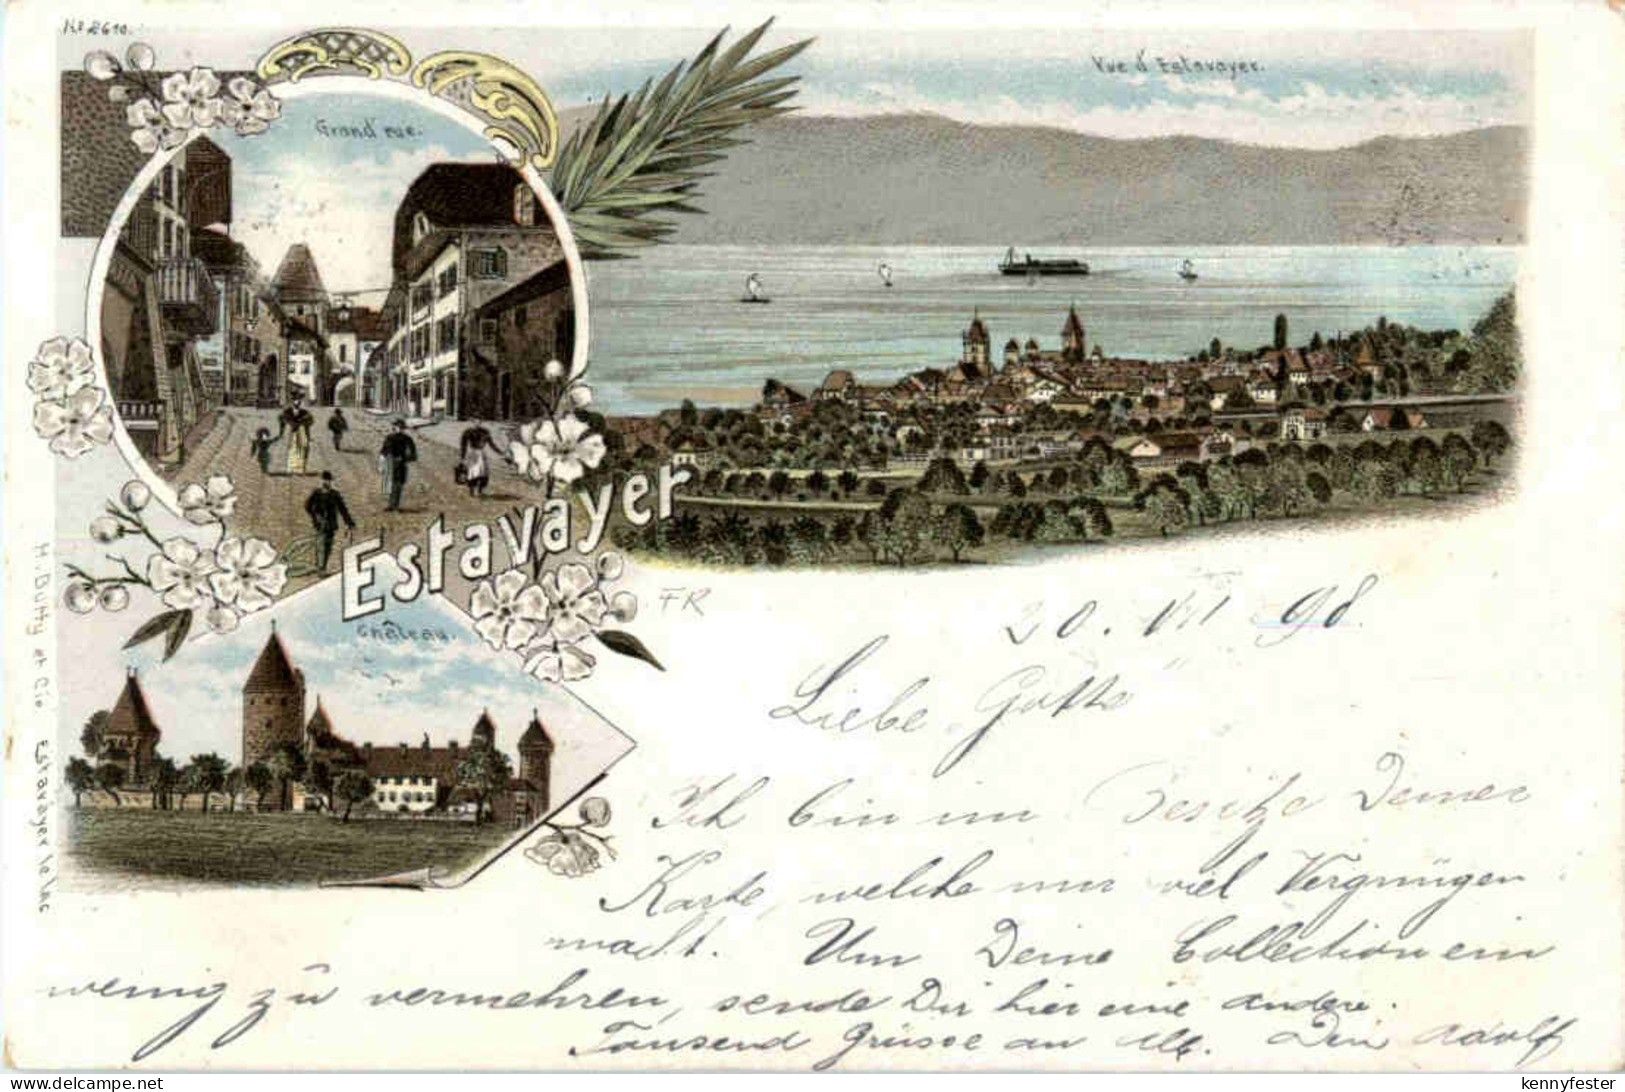 No 2610.
Grand'rue.
Vue d'Estavayer.
Estavayer
Château.
H. Butty et Cie Estavayer le lac
FR
20. VII 98.
Liebe Gotte
Ich bin im Besitze Deiner
Karte, welche mir viel Vergnügen
macht. Um Deine Collection ein
wenig zu vermehren, sende Dir hier eine andere.
Tausend Grüsse an Alle. Dein Adolf
kennyfester